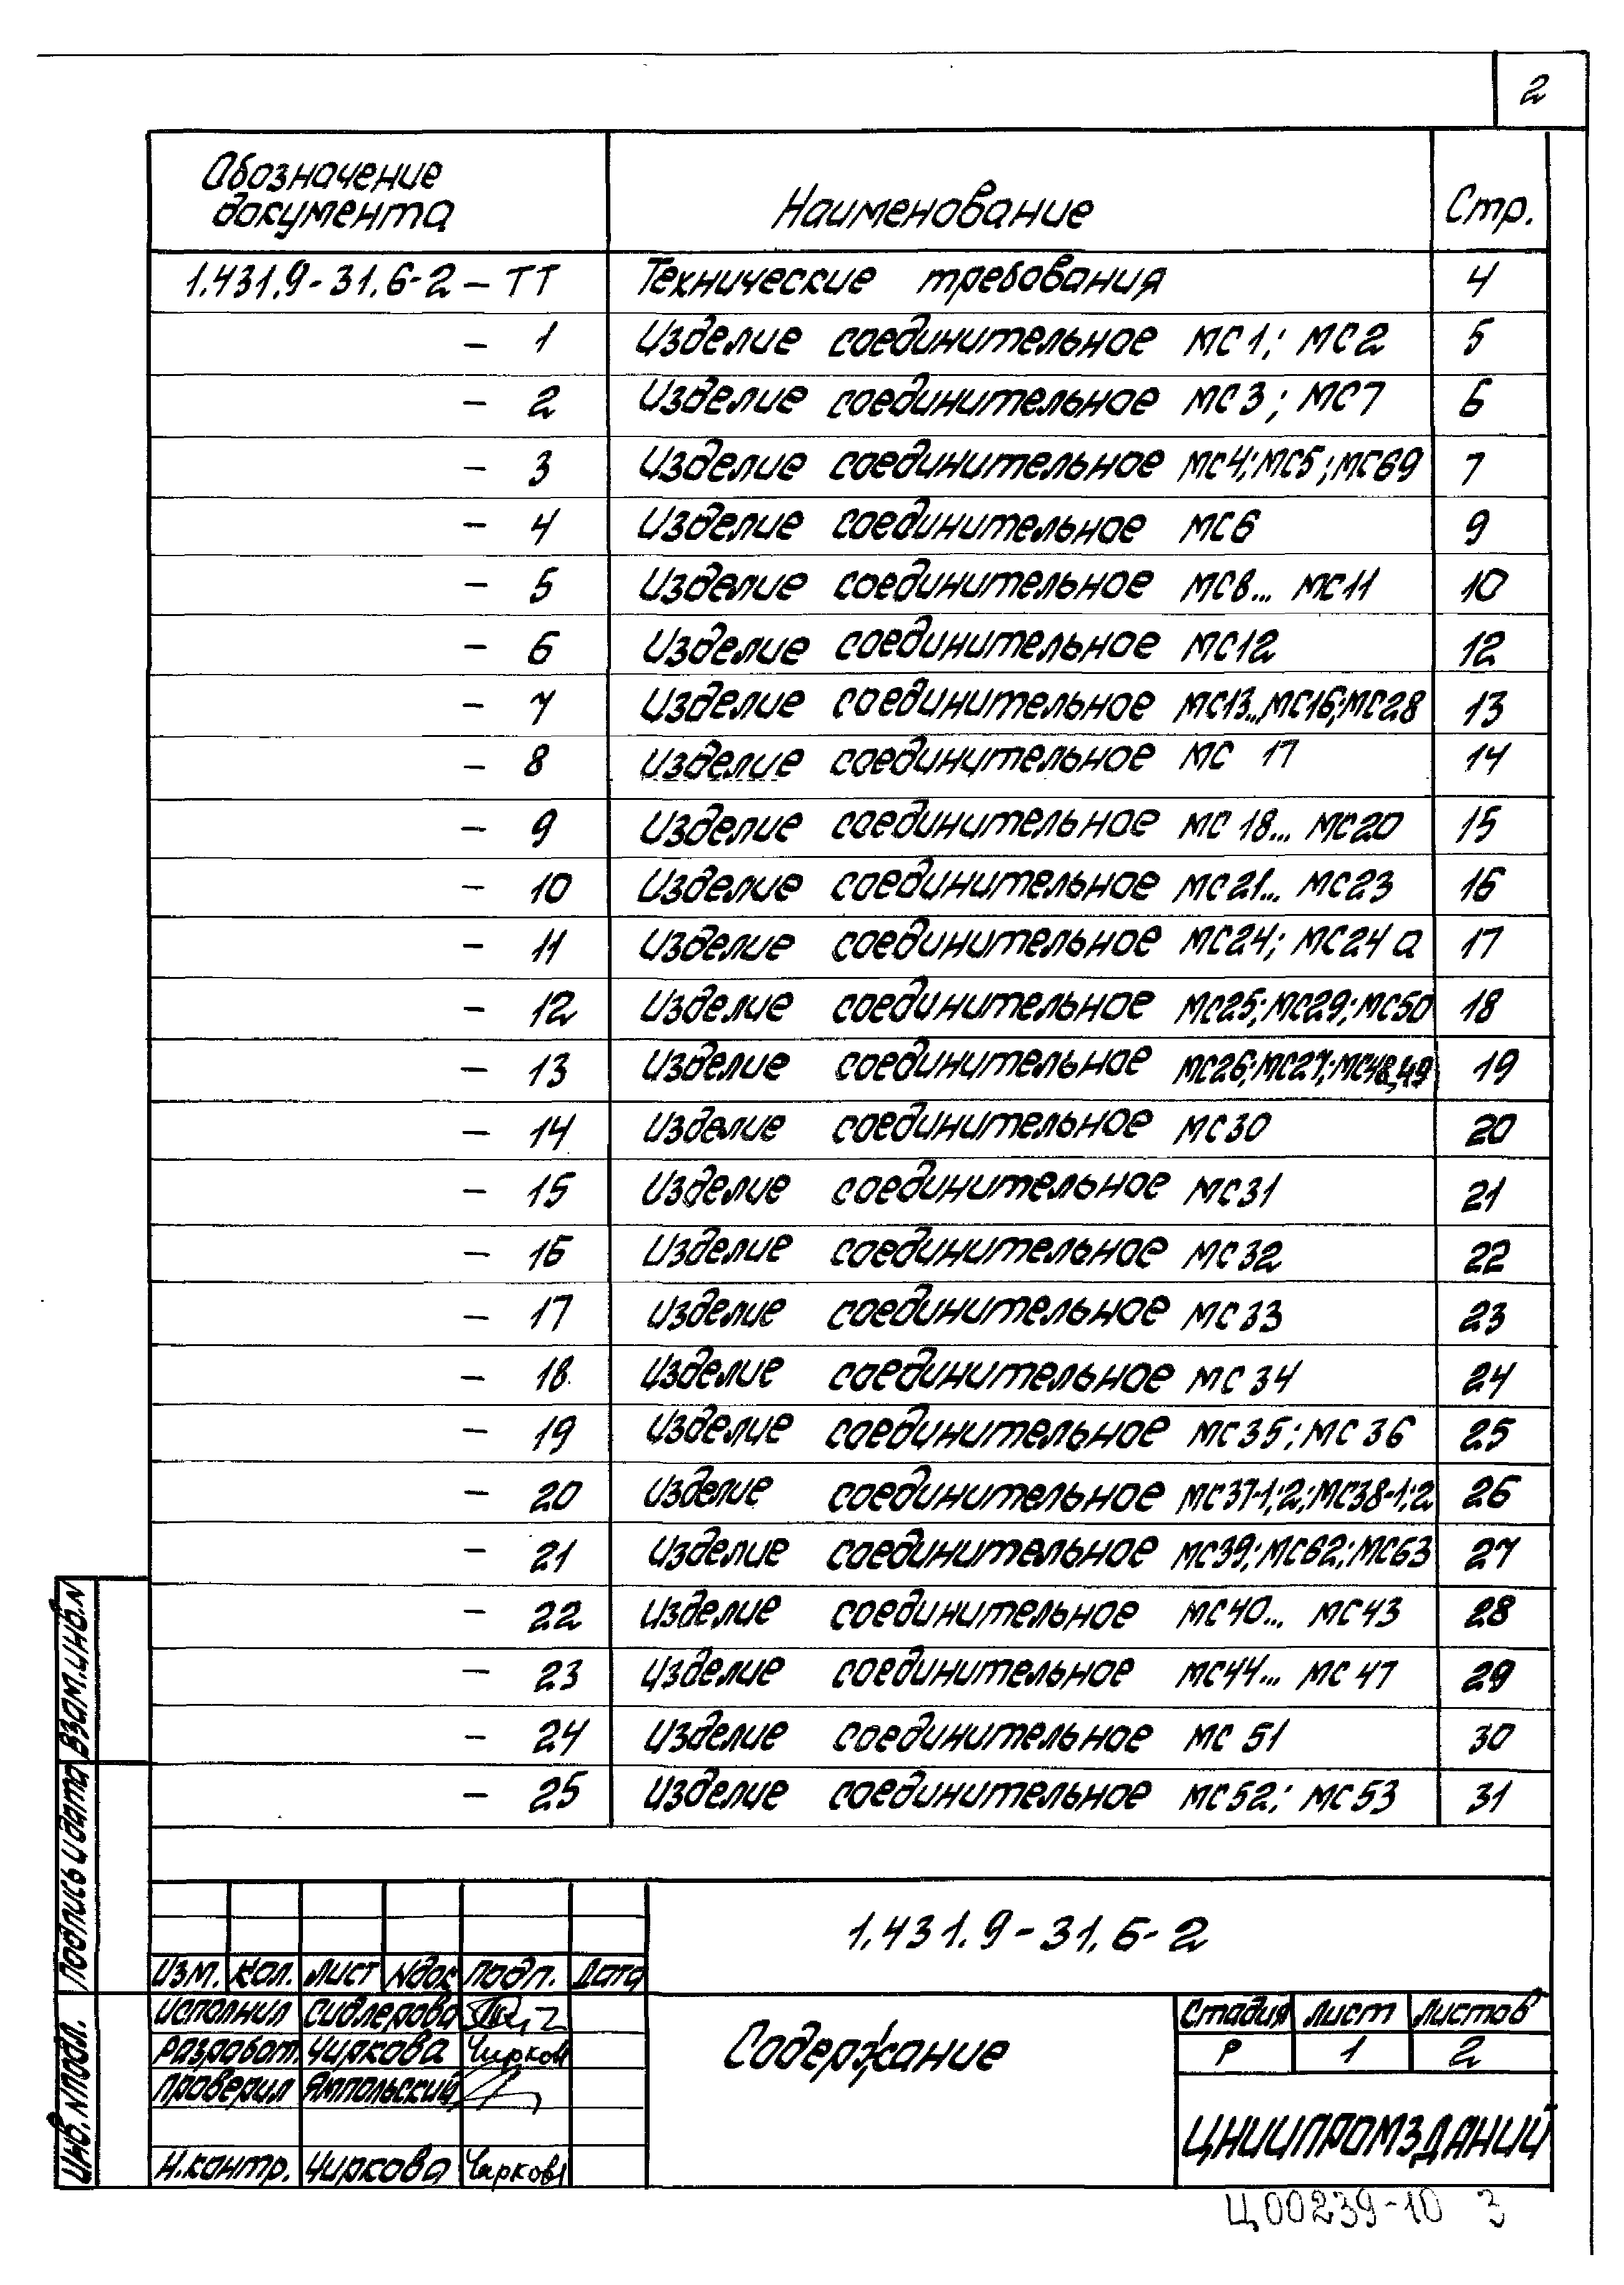 2
Обозначение документа Наименование Стр.
1.431.9-31.6-2 - ТТ Технические требования 4
- 1 Изделие соединительное МС1; МС2 5
- 2 Изделие соединительное МС3; МС7 6
- 3 Изделие соединительное МС4; МС5; МС69 7
- 4 Изделие соединительное МС6 9
- 5 Изделие соединительное МС8... МС11 10
- 6 Изделие соединительное МС12 12
- 7 Изделие соединительное МС13...МС16; МС28 13
- 8 Изделие соединительное МС 17 14
- 9 Изделие соединительное МС 18... МС20 15
- 10 Изделие соединительное МС21... МС23 16
- 11 Изделие соединительное МС24; МС24а 17
- 12 Изделие соединительное МС25; МС29; МС50 18
- 13 Изделие соединительное МС26; МС27; МС48,49 19
- 14 Изделие соединительное МС30 20
- 15 Изделие соединительное МС31 21
- 16 Изделие соединительное МС32 22
- 17 Изделие соединительное МС33 23
- 18 Изделие соединительное МС 34 24
- 19 Изделие соединительное МС35; МС 36 25
- 20 Изделие соединительное МС37-1;2; МС38-1;2 26
- 21 Изделие соединительное МС39; МС62; МС63 27
- 22 Изделие соединительное МС40... МС43 28
- 23 Изделие соединительное МС44... МС 47 29
- 24 Изделие соединительное МС 51 30
- 25 Изделие соединительное МС52; МС53 31
Взам.инв.N
Подпись и дата
Инв. N подл.
1.431.9-31.6-2
Изм. Кол. Лист Nдок Подп. Дата
Исполнил Сидлерова
Разработ. Чиркова Чиркова
Проверил Ямпольский
Н.контр. Чиркова Чиркова
Содержание
Стадия Лист Листов
Р 1 2
ЦНИИПРОМЗДАНИЙ
Ц00239-10 3